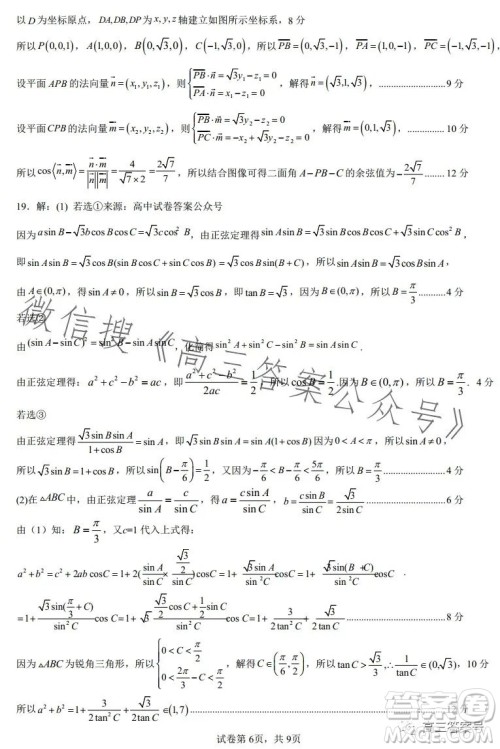 以 D 为坐标原点，DA,DB,DP 为 x, y, z 轴建立如图所示坐标系，8 分
所以 P(0,0,1)，A(1,0,0)，B(0,√3,0)，所以 PB=(0,√3,-1)，PA=(1,0,-1)，PC=(-1,√3,-1)，
设平面 APB 的法向量 n=(x₁,y₁,z₁)，则 {PB·n=√3y₁-z₁=0 PA·n=x₁-z₁=0，解得 n=(√3,1,√3)，……9 分
设平面 CPB 的法向量 m=(x₂,y₂,z₂)，则 {PB·m=√3y₂-z₂=0 PC·m=-x₂+√3y₂-z₂=0，解得 m=(0,1,√3)，……10 分
所以 cos⟨n,m⟩=n·m/|n||m|=4/(√7×2)=2√7/7，所以结合图像可得二面角 A-PB-C 的余弦值为 -2√7/7 ……12 分
19．解：(1) 若选①来源：高中试卷答案公众号
因为 a sin B-√3b cos B cos C=√3c cos²B，由正弦定理得 sin A sin B-√3 sin B cos B cos C=√3 sin C cos²B，
即 sin A sin B=√3 cos B(sin B cos C+sin C cos B)，所以 sin A sin B=√3 cos B sin(B+C)，所以 sin A sin B=√3 cos B sin A，
由 A∈(0,π)，得 sin A≠0，所以 sin B=√3 cos B，即 tan B=√3，因为 B∈(0,π)，所以 B=π/3……4 分
若选②
由 (sin A-sin C)²=，化简得 sin²A+sin²C-sin²B=sin A sin C．
由正弦定理得：a²+c²-b²=ac，即 (a²+c²-b²)/2ac=1/2，所以 =1/2．因为 B∈(0,π)，所以 B=π/3．4 分
若选③
由正弦定理得 √3 sin B sin A/(1+cos B)=sin A，即 √3 sin B sin A=sin A(1+cos B) 因为 0<A<π，所以 sin A≠0，
所以 √3 sin B=1+cos B，所以 sin(B-π/6)=1/2，又因为 -π/6<B-π/6<5π/6，所以 B=π/3……4 分
(2)在△ABC 中，由正弦定理 a/sin A=c/sin C，得 a=c sin A/sin C，b=c sin B/sin C=√3/2sin C……6 分
由（1）知：B=π/3，又c=1 代入上式得：
a²+b²=c²+2ab cos C=1+2(sin A/sin C × (√3/2)/sin C)cos C=1+√3 sin A/sin²C cos C=1+√3 sin(B+C)/sin²C cos C
=1+√3 sin(π/3+C)/sin²C cos C=1+√3(√3/2 cos C+1/2 sin C)/sin²C cos C=1+3/2tan²C+√3/2tan C……8 分
因为△ABC 为锐角三角形，所以 {0<C<π/2 0<2π/3-C<π/2，解得 C∈(π/6,π/2)，所以 tan C>√3/3,∴1/tan C∈(0,√3)，10 分
所以 a²+b²=1+3/2tan²C+√3/2tan C∈(1,7)……
微信搜《高三答案公众号》
高三答案号
试卷第 6页，共 9页